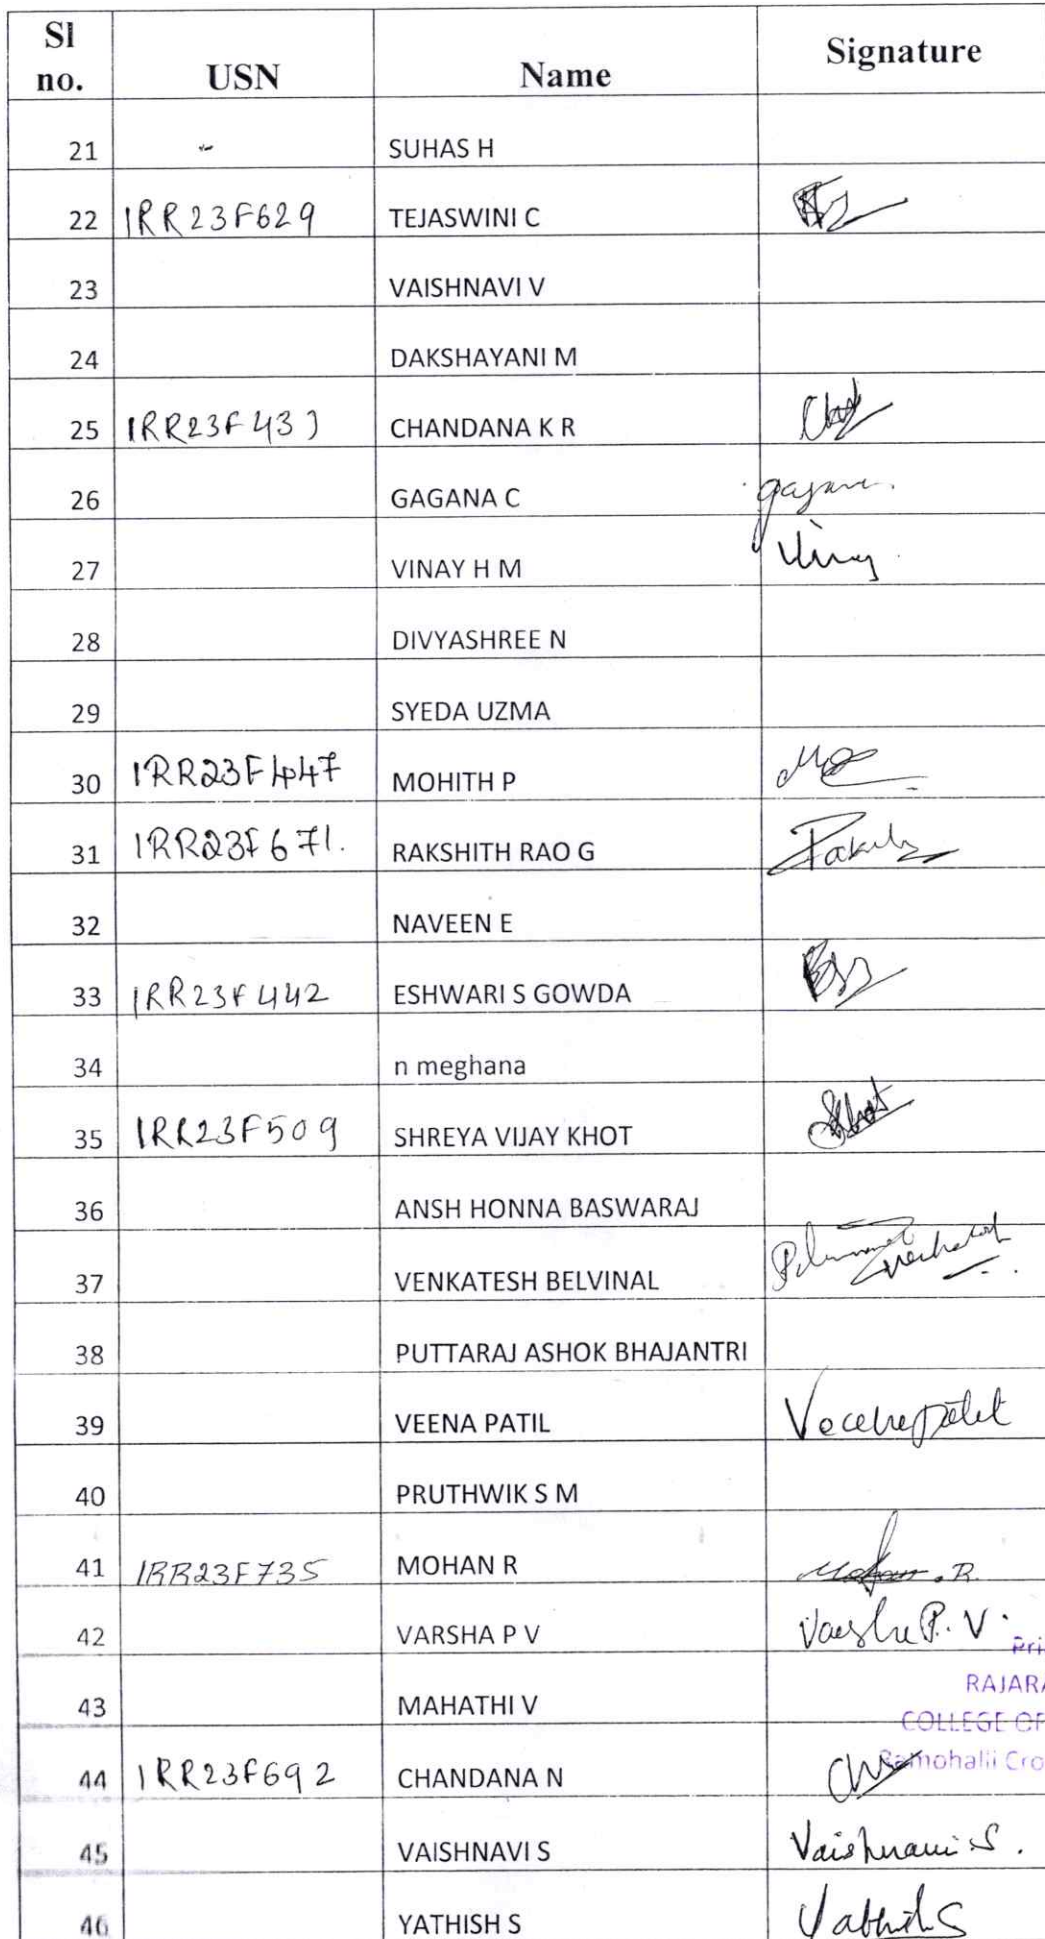 Sl no. USN Name Signature
21 SUHAS H
22 1RR23F629 TEJASWINI C
23 VAISHNAVI V
24 DAKSHAYANI M
25 1RR23F43 CHANDANA K R
26 GAGANA C gagana.
27 VINAY H M Vinay
28 DIVYASHREE N
29 SYEDA UZMA
30 1RR23F447 MOHITH P
31 1RR23F671. RAKSHITH RAO G
32 NAVEEN E
33 1RR23F442 ESHWARI S GOWDA
34 n meghana
35 1RR23F509 SHREYA VIJAY KHOT
36 ANSH HONNA BASWARAJ
37 VENKATESH BELVINAL
38 PUTTARAJ ASHOK BHAJANTRI
39 VEENA PATIL Veena patil
40 PRUTHWIK S M
41 1RR23F735 MOHAN R Mohan.R.
42 VARSHA P V Varsha P.V.
Pri
43 MAHATHI V
RAJARA
COLLEGE OF
44 1RR23F692 CHANDANA N
Ramohalli Cro
45 VAISHNAVI S Vaishnavi.S.
46 YATHISH S